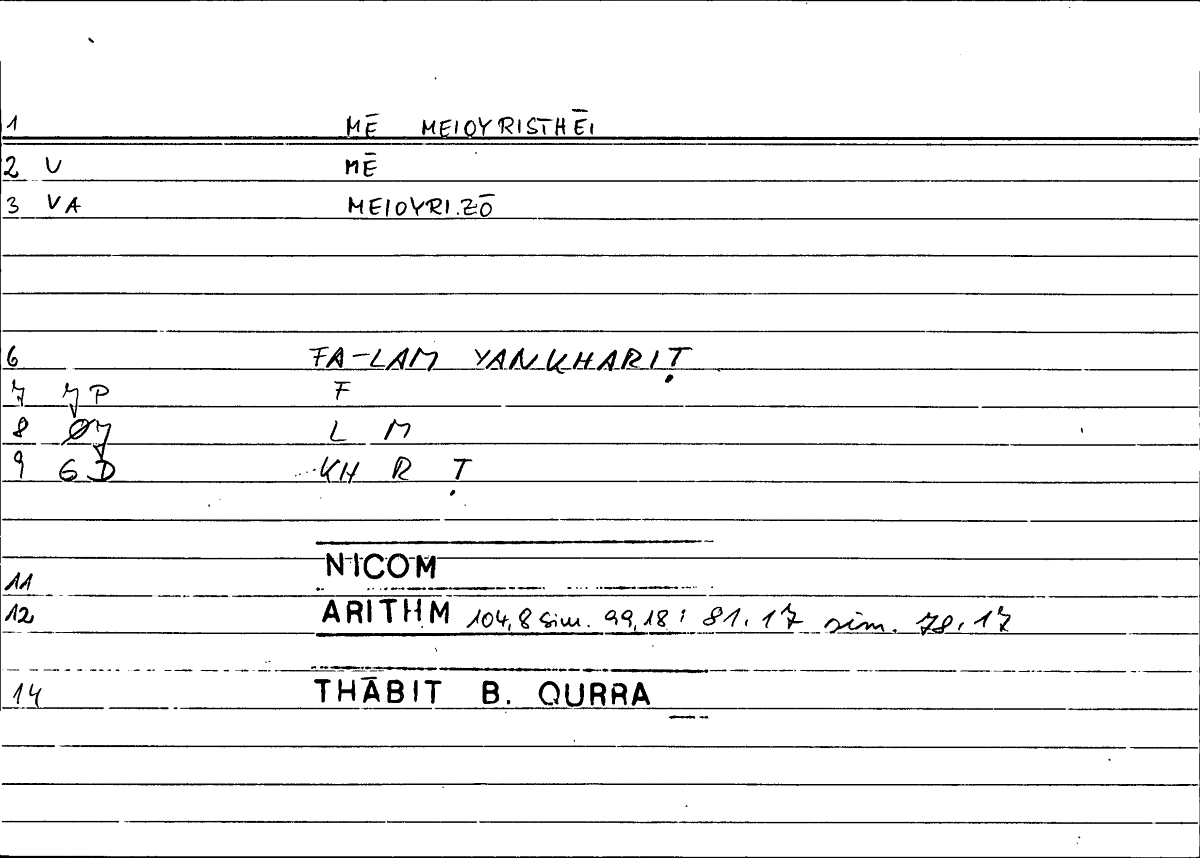 1 MĒ MEIOYRISTHĒI
2 V MĒ
3 VA MEIOYRI.ZŌ
6 FA-LAM YANKHARIṬ
7 7P F
8 Ø7 L M
9 6D KH R Ṭ
11 NICOM
12 ARITHM 104,8 sim. 99,18 : 81.17 sim. 78.17
14 THĀBIT B. QURRA